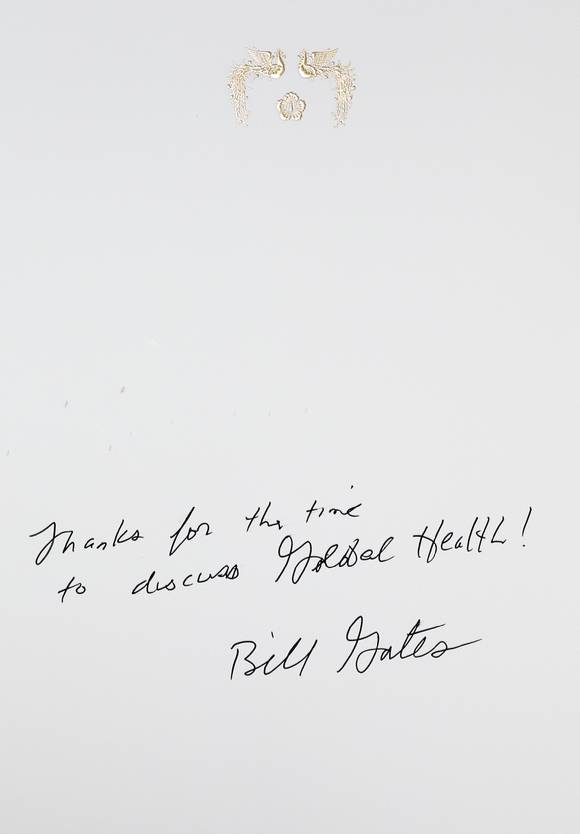 Thanks for the time
to discuss Global Health!
Bill Gates